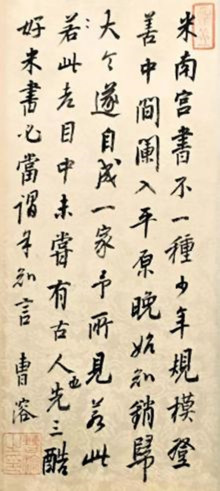 米南宫書不一種少年規模登
善中間闌入平原晚始知銷歸
大令遂自成一家予所見若此
若此老目中未嘗有古人也先三酷
好米書必當謂知言 曹溶